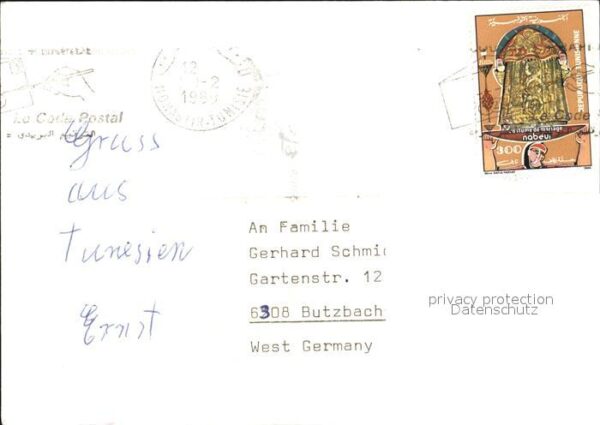 Le Code Postal
الترقيم البريدي
12
-2
MONASTIR-TUNISIE
REPUBLIQUE TUNISIENNE
Costume de mariage
nabeul
300
Gruss
aus
Tunesien
Ernst
An Familie
Gerhard Schmid
Gartenstr. 12
6308 Butzbach
West Germany
privacy protection
Datenschutz